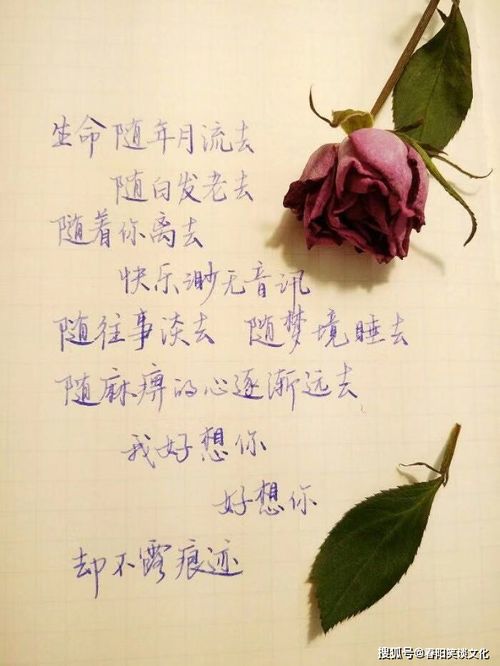 生命随年月流去
随白发老去
随着你离去
快乐渺无音讯
随往事淡去 随梦境睡去
随麻痹的心逐渐远去
我好想你
好想你
却不露痕迹
搜狐号@春阳笑谈文化